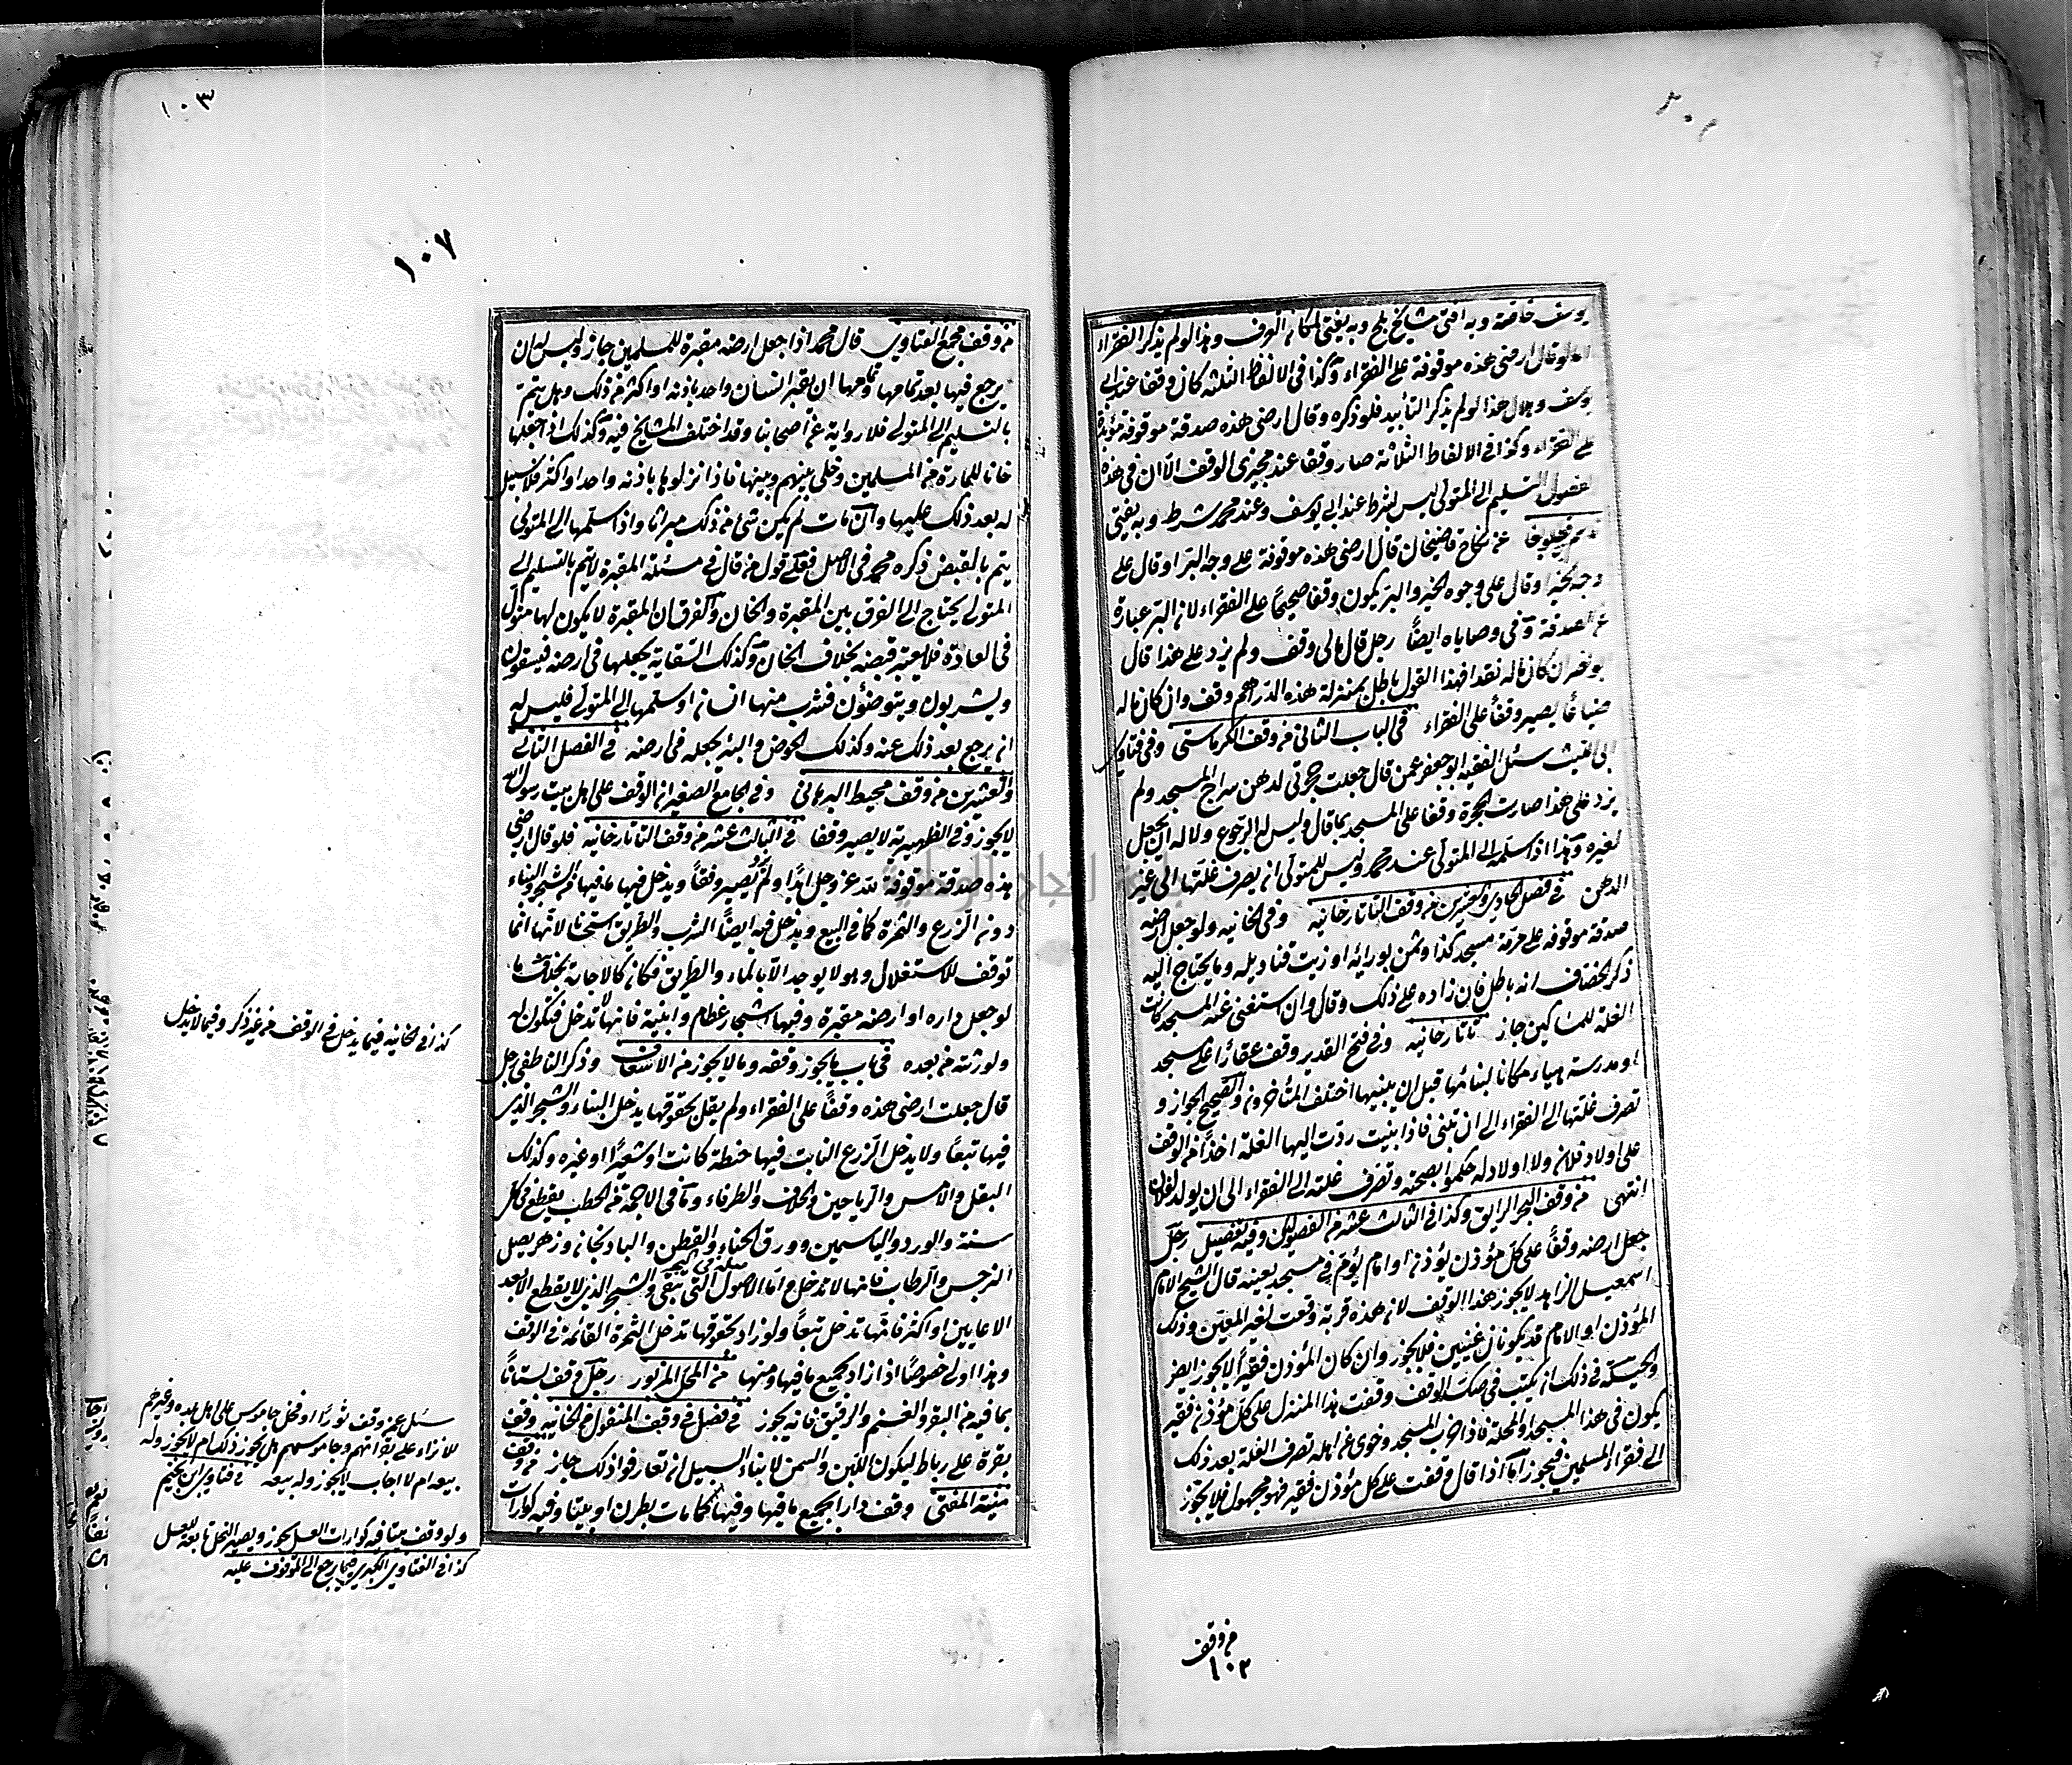 يوسف خاصة وبه افتى مشايخ بلخ وبه يفتى لمكان العرف وهذا لو لم يذكر الفقراء
لو قال ارضى هذه موقوفة على الفقراء وكذا فى الالفاظ الثلثة كان وقفا عند ابى
يوسف وهلال هذا لو لم يذكر التأبيد فلو ذكره وقال ارضى هذه صدقة موقوفة مؤبدة
على الفقراء وكذا فى الالفاظ الثلاثة صار وقفا عند مجيزى الوقف الا ان فى هذه
الفصول التسليم الى المتولى ليس بشرط عند ابى يوسف وعند محمد شرط وبه يفتى
عن نكاح قاضيخان قال ارضى هذه موقوفة على وجه البر او قال على
وجه الخير او قال على وجوه الخير والبر يكون وقفا صحيحا على الفقراء لان البر عبارة
عن الصدقة وفى وصاياه ايضا رجل قال مالى وقف ولم يزد على هذا قال
ابو نصر ان كان ماله نقدا فهذا القول باطل بمنزلة هذه الدراهم وقف وان كان ماله
ضياعا يصير وقفا على الفقراء فى الباب الثانى من وقف الكرماستى وفى فتاوى
ابى الليث سئل الفقيه ابو جعفر عمن قال جعلت حجرتى لدهن سراج المسجد ولم
يزد على هذا صارت الحجرة وقفا على المسجد بما قال وليس له الرجوع ولا له ان يجعل
لغيره وهذا اذا سلمه الى المتولى عند محمد وليس للمتولى ان يصرف غلتها الى غير
الدهن فى فصل الحادى والعشرين من وقف التاتارخانيه وفى الخانيه ولو جعل ارضه
صدقة موقوفة على مرمة مسجد كذا وثمن بواريه او زيت قناديله وما يحتاج اليه
ذكر الخصاف انه باطل فان زاد على ذلك وقال وان استغنى عنه المسجد كانت
الغلة للمساكين جاز تاتارخانيه وفى فتح القدير وقف عقارا على مسجد
او مدرسة هياء مكانا لبنائها قبل ان يبنيها اختلف المتأخرون والصحيح الجواز و
تصرف غلتها الى الفقراء الى ان تبنى فاذا بنيت ردت اليها الغلة اخذا من الوقف
على اولاد فلان ولا اولاد له حكموا بصحته وتصرف غلته الى الفقراء الى ان يولد لفلان
انتهى من وقف البحر الرايق وكذا فى الثالث عشر من الفصولين وفيه تفصيل رجل
جعل ارضه وقفا على كل مؤذن يؤذن او امام يؤم فى مسجد بعينه قال الشيخ الامام
اسمعيل الزاهد لا يجوز هذا الوقف لان هذه قربة وقعت لغير المعين وذلك
المؤذن او الامام قد يكونان غنيين فلا يجوز وان كان المؤذن فقيرا لا يجوز ايضا
والحيلة فى ذلك ان يكتب فى صك الوقف وقفت هذا المنزل على كل مؤذن فقير
يكون فى هذا المسجد او المحلة فاذا خرب المسجد وخوى عن اهله تصرف الغلة بعد ذلك
الى فقراء المسلمين فيجوز اما اذا قال وقفت على كل مؤذن فقير فهو مجهول فلا يجوز
من وقف
١٠٢
١٠٣
١٠٧
من وقف مجمع الفتاوى قال محمد اذا جعل ارضه مقبرة للمسلمين جاز وليس له ان
يرجع فيها بعد تمامها وتمامها ان يقبر انسان واحد باذنه او اكثر من ذلك وهل يتم
بالتسليم الى المتولى فلا رواية عن اصحابنا وقد اختلف المشايخ فيه وكذلك اذا جعلها
خانا للمارة من المسلمين وخلى بينهم وبينها فاذا نزلوها باذنه واحد او اكثر فلا سبيل
له بعد ذلك عليها وان مات لم يكن شئ من ذلك ميراثا واذا سلمها الى المتولى
يتم بالقبض ذكره محمد فى الاصل فعلى قول من قال فى مسئلة المقبرة لا يتم بالتسليم الى
المتولى يحتاج الى الفرق بين المقبرة والخان والفرق ان المقبرة لا يكون لها متول
فى العادة فلا يعتبر قبضه بخلاف الخان وكذلك السقاية يجعلها فى ارضه فيسقون
ويشربون ويتوضئون فشرب منها انسان او سلمها الى المتولى فليس له
ان يرجع بعد ذلك عنه وكذلك الحوض والبئر يجعله فى ارضه فى الفصل الثانى
والعشرين من وقف محيط البرهانى وفى الجامع الصغير ان الوقف على اهل بيت رسول الله
لا يجوز وفى الظهيرية لا يصير وقفا فى الثالث عشر من وقف التاتارخانيه فلو قال ارضى
هذه صدقة موقوفة لله عز وجل ابدا ولم تصير وقفا ويدخل فيها ما فيها من الشجر والبناء
دون الزرع والثمرة كما فى البيع ويدخل فيه ايضا الشرب والطريق استحسانا لانها انما
توقف للاستغلال وهو لا يوجد الا بالماء والطريق فكان كالاجارة بخلاف ما
لو جعل داره او ارضه مقبرة وفيها اشجار عظام وابنية فانها لا تدخل فتكون له
ولورثته من بعده فى باب ما يجوز وقفه وما لا يجوز من الاسعاف وذكر الناطفى رجل
قال جعلت ارضى هذه وقفا على الفقراء ولم يقل بحقوقها يدخل البناء والشجر الذى
فيها تبعا ولا يدخل الزرع النابت فيها حنطة كانت او شعيرا او غيره وكذلك
البقل والاس والرياحين والخلاف والطرفاء وما فى الاجمة من الحطب يقطع فى كل
سنة والورد والياسمين وورق الحناء والقطن والبادنجان وزهر بصل
النرجس والرطاب فانها لا تدخل واما الاصول التى تبقى والشجر الذى لا يقطع الا بعد
الا عامين او اكثر فانها تدخل تبعا ولو زاد بحقوقها تدخل الثمرة القائمة فى الوقف
وهذا اولى خصوصا اذا زاد بجميع ما فيها ومنها من المحل المزبور رجل وقف بستانا
بما فيه من البقر والغنم والرقيق فانه يجوز فى فصل فى وقف المنقول من الخانيه وقف
بقرة على رباط ليكون اللبن والسمن لابناء السبيل ان تعارفوا ذلك جاز من وقف
منية المفتى وقف دارا بجميع ما فيها وفيها حمامات يطرن او بيتا وفيه كوارات
كذا فى الخانيه فيما يدخل فى الوقف من غير ذكر وفيما لا يدخل
سئل عن وقف ثورا او فحل جاموس على اهل بلده وغيرهم
للانزاء على بقراتهم وجاموسهم هل يجوز ذلك ام لا يجوز وله
بيعه ام لا اجاب لا يجوز وله بيعه فى فتاوى ابن نجيم
ولو وقف بيتا فيه كوارات العسل يجوز ويصير النحل تابعة للعسل
كذا فى الفتاوى الكبرى فيما يرجع الى الموقوف عليه